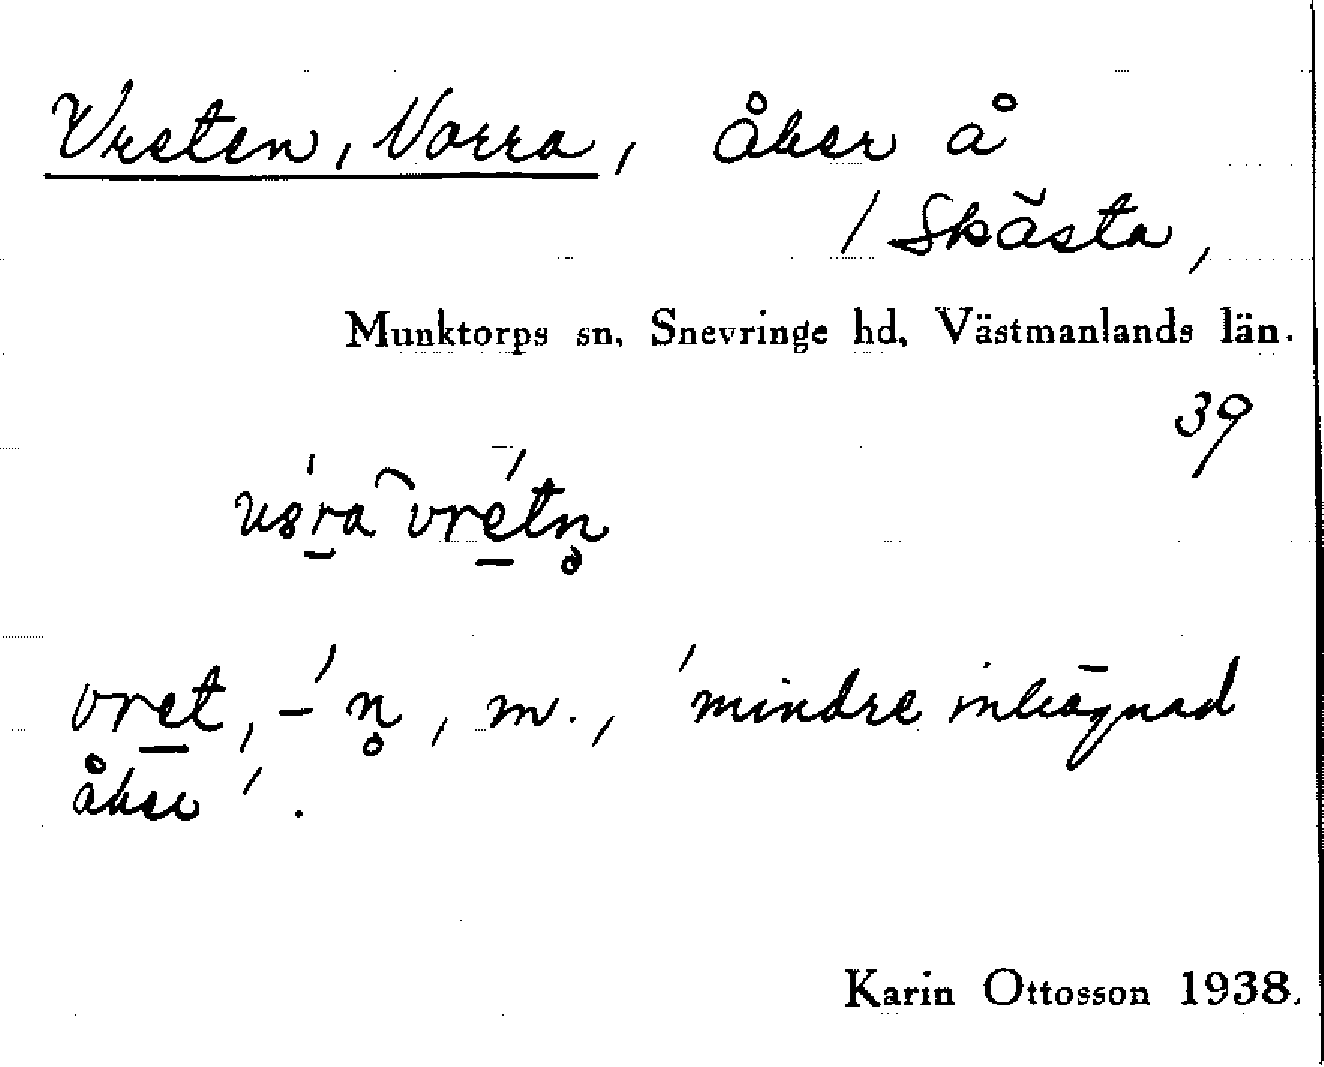 Vreten, Norra, åker å
/ Skästa,
Munktorps sn, Snevringe hd, Västmanlands län.
39
vret, -´n̥, m., 'mindre inhägnad
åker'.
Karin Ottosson 1938.